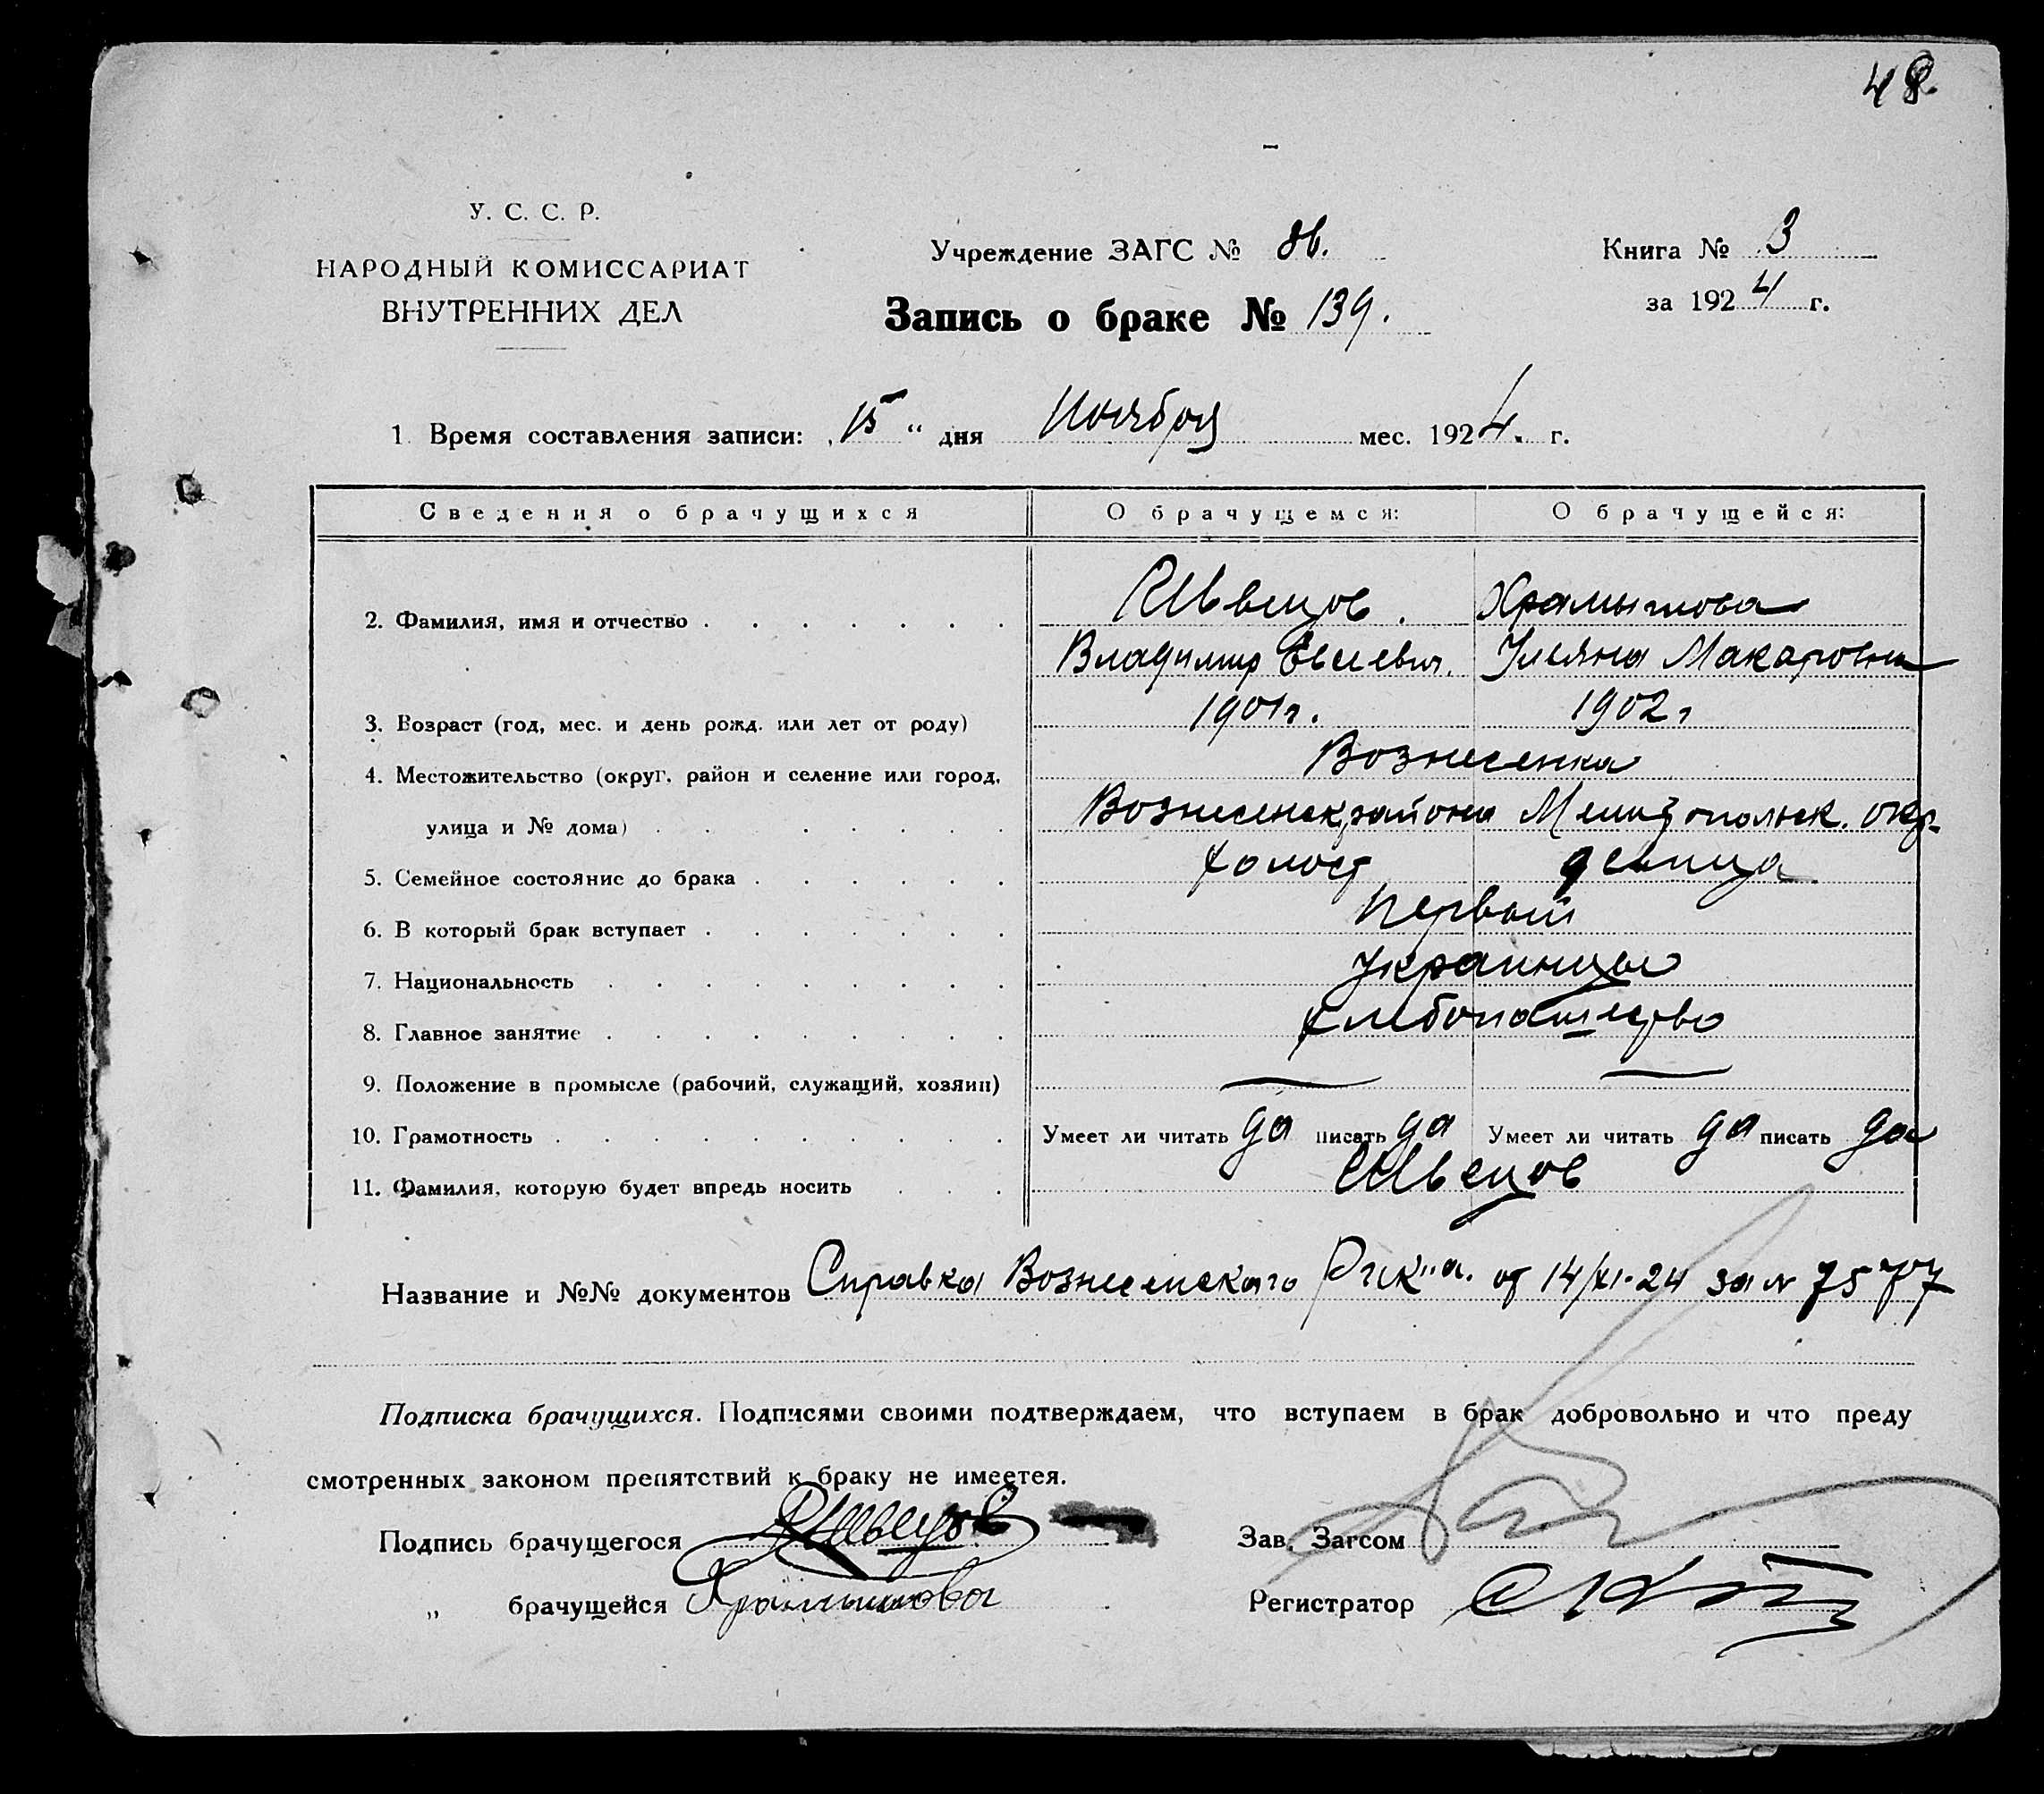 48.
У. С. С. Р.
НАРОДНЫЙ КОМИССАРИАТ
ВНУТРЕННИХ ДЕЛ
Учреждение ЗАГС № 86.
Запись о браке № 139.
Книга № 3
за 1924 г.
1 Время составления записи: „15“ дня Ноября мес. 1924. г.
Сведения о брачущихся О брачущемся: О брачущейся:
2. Фамилия, имя и отчество Швецов. Храмышова
Владимир Евсеевич. Ульяна Макаровна
3. Возраст (год, мес. и день рожд. или лет от роду) 1901г. 1902г
4. Местожительство (округ, район и селение или город, Вознесенка
улица и № дома) Вознесенск района Мелитопольск. окр.
5. Семейное состояние до брака холост девица
6. В который брак вступает первый
7. Национальность украинцы
8. Главное занятие хлебопашество
9. Положение в промысле (рабочий, служащий, хозяин) — —
10. Грамотность Умеет ли читать да писать да Умеет ли читать да писать да
11. Фамилия, которую будет впредь носить Швецов
Название и №№ документов Справка Вознесенского Рик"а. от 14/XI-24 за № 7577
Подписка брачущихся. Подписями своими подтверждаем, что вступаем в брак добровольно и что преду
смотренных законом препятствий к браку не имеется.
Подпись брачущегося Швецов Зав. Загсом
„ брачущейся Храмышова Регистратор